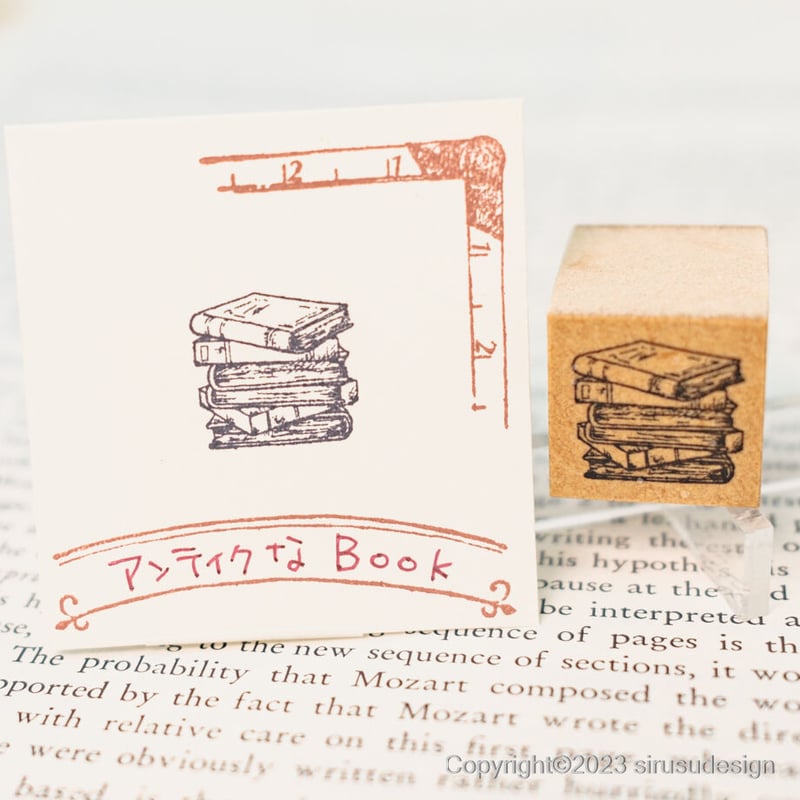 2 1
1
2
アンティクな Book
writing the
this hypothes
pause at the
be interpreted a
sequence of pages is th
to the new sequence of sections, it wo
The probability that Mozart composed the wo
pported by the fact that Mozart wrote the dire
with relative care on this first
e were obviously written rather
based
Copyright©2023 sirusudesign